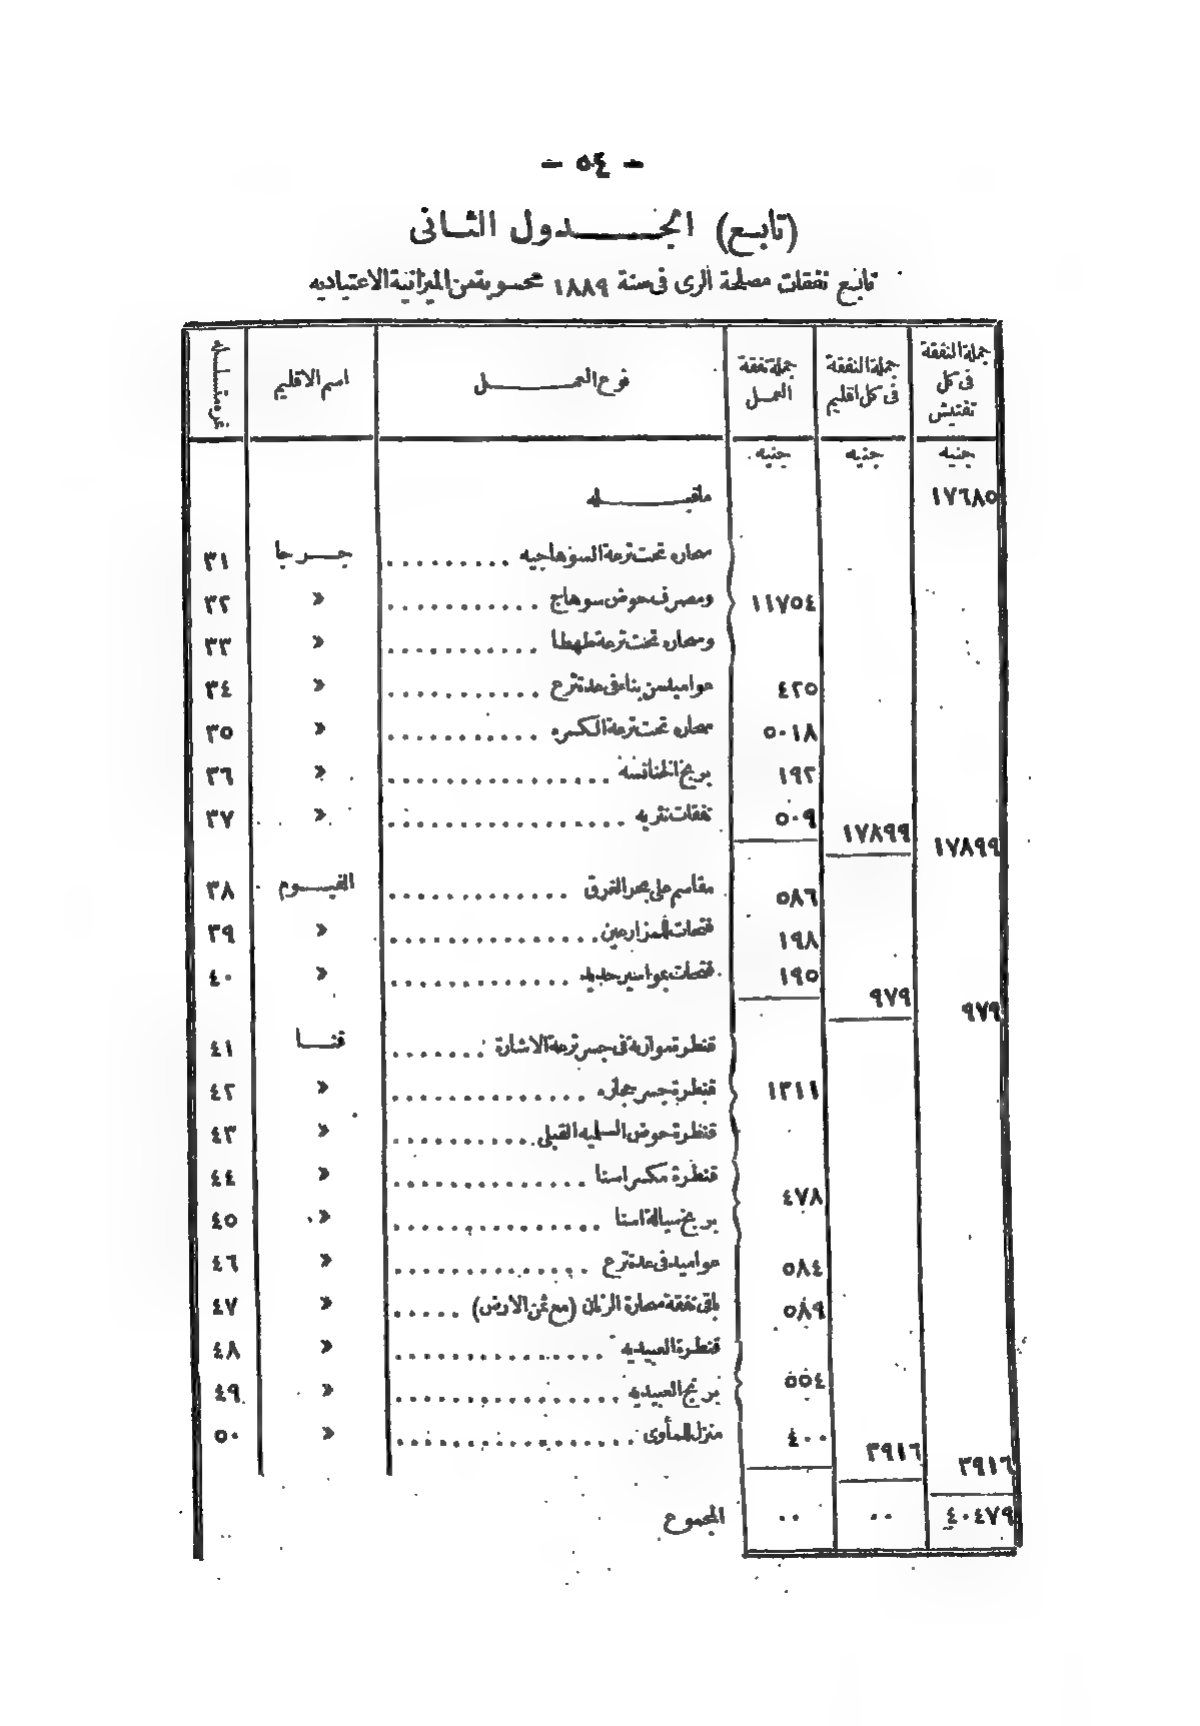 - ٥٤ -
(تابع) الجدول الثانى
تابع نفقات مصلحة الرى فى سنة ١٨٨٩ محسوبة من الميزانية الاعتياديه
نمره متسلسله | اسم الاقليم | نوع العمل | جملة نفقة العمل | جملة النفقة فى كل اقليم | جملة النفقة فى كل تفتيش
جنيه | جنيه | جنيه
ماقبله ١٧٦٨٥
٣١ جرجا سحاره تحت ترعة السوهاجيه .........
٣٢ » ومصرف حوض سوهاج .......... ١١٧٥٤
٣٣ » وسحاره تحت ترعة طهطا ..........
٣٤ » عواميد من بناء فى عدة ترع .......... ٤٢٥
٣٥ » سحاره تحت ترعة الكسره .......... ٥٠١٨
٣٦ » بربخ الخنافسه .............. ١٩٢
٣٧ » نفقات نثريه ................ ٥٠٩ ١٧٨٩٩ ١٧٨٩٩
٣٨ الفيوم مقاسم على بحر الغرق ............ ٥٨٦
٣٩ » فتحات للمزارعين .............. ١٩٨
٤٠ » فتحات بمواسير حديد ............ ١٩٥ ٩٧٩ ٩٧٩
٤١ قنا قنطرة موازنة فى جسر ترعة الاشارة .......
٤٢ » قنطرة جسر حجازه ............. ١٣١١
٤٣ » قنطرة حوض السلميه القبلى ..........
٤٤ » قنطرة مكسر اسنا .............
٤٥ » بربخ سيالة اسنا .............. ٤٧٨
٤٦ » عواميد فى عدة ترع .............. ٥٨٤
٤٧ » باقى نفقة سحارة الرنان (مع ثمن الارض) ..... ٥٨٩
٤٨ » قنطرة العبيديه ..............
٤٩ » بربخ العبيديه ............... ٥٥٤
٥٠ » منزل المأوى ................ ٤٠٠ ٣٩١٦ ٣٩١٦
المجموع ٠٠ ٠٠ ٤٠٤٧٩